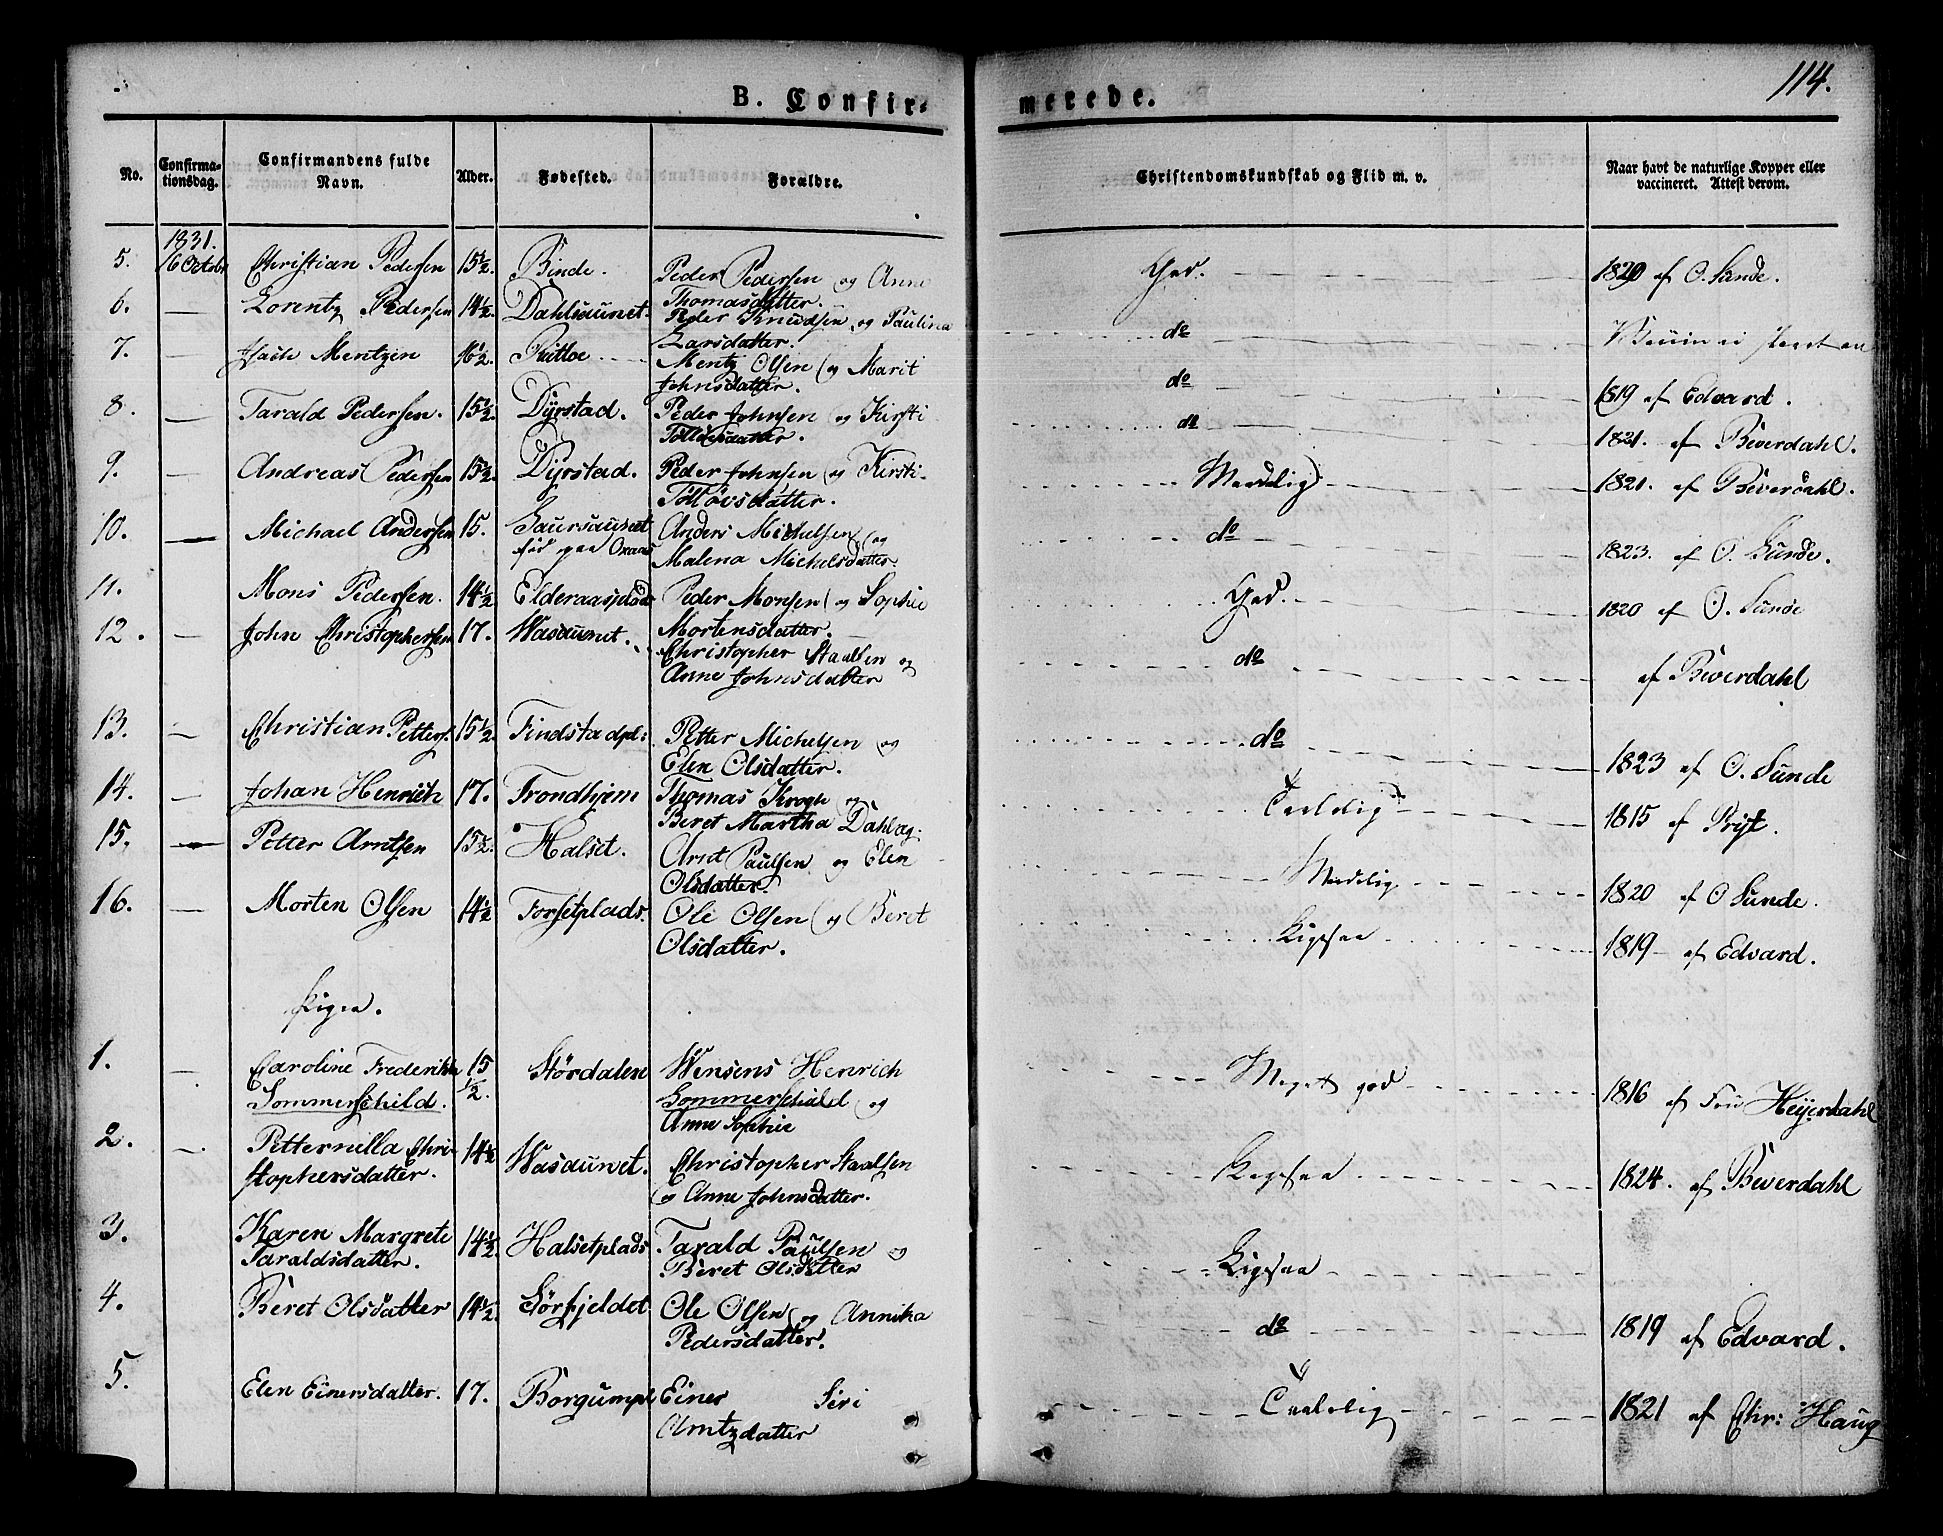 114.
B. Confir- merede.
No. Confirma-tionsdag. Confirmandens fulde Navn. Alder. Fødested. Forældre. Christendomskundskab og Flid m. v. Naar havt de naturlige Kopper eller vaccineret. Attest derom.
1831.
5. 16 Octobr Christian Pedersen 15½. Binde. Peder Pedersen og Anne Thomasdatter. God. 1820 af O. Sunde.
6. — Lorentz Pedersen 14½. Dahlsaunet. Peder Knudsen og Paulina Larsdatter. do
7. — Mentzen 16½. Mentz Olsen og Marit Johnsdatter. do 1819 af Edvard.
8. — Tarald Pedersen. 15½. Dyrstad. Peder Johnsen og Kirsti do 1821. af Beverdahl.
9. — Andreas Pedersen 15½. Dyrstad. Peder Johnsen og Kirsti Tolløvsdatter. Maadelig 1821. af Beverdahl.
10. — Michael Andersen 15. Gaursaunet fød paa Anders Michelsen og Malena Michelsdatter do 1823. af O. Sunde.
11. Mons Pedersen. 14½ Elderaasplads Peder Monsen og Sophie Mortensdatter. God. 1820 af O. Sunde
12. — John Christophersen 17. Wasaunet. Christopher Staalsen og Anne Johnsdatter do af Beverdahl
13. — Christian Petters. 15½. Findstadpl: Petter Michelsen og Elen Olsdatter. do 1823 af O. Sunde
14. — Johan Henrich 17. Trondhjem Thomas Krogh og Beret Martha Dahlag: Taalelig 1815 af
15. — Petter Arntsen 15½. Halset. Arnt Paulsen og Elen Olsdatter. Maadelig 1820 af O Sunde.
16. — Morten Olsen 14½ Forsetplads. Ole Olsen og Beret Olsdatter. Ligesaa 1819 af Edvard.
Piger.
1. — Caroline Frederikke Sommerschild. 15½. Størdalen Henrich Sommerschield og Anne Sophie Meget god 1816 af Fru Heyerdahl
2. — Petternilla Christophersdatter. 14½ Wasaunet. Christopher Staalsen og Anne Johnsdatter. Ligesaa 1824. af Beverdahl
3. Karen Margrete Taraldsdatter. 14½. Halsetplads Tarald Paulsen og Beret Olsdatter Ligesaa
4. Beret Olsdatter 14½. Sørfjeldet Ole Olsen og Annika Pedersdatter. do 1819 af Edvard.
5. Elen Einersdatter. 17. Borgumpl Einer Siri Arntzdatter Taalelig 1821 af Chr: Haug